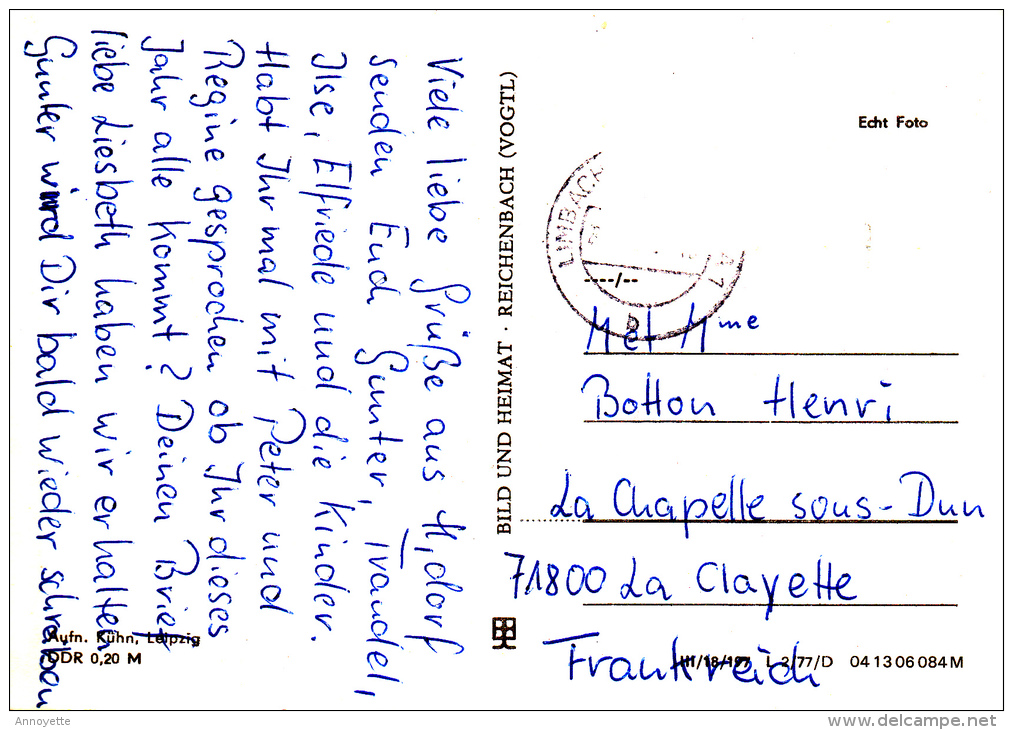 Viele liebe Grüße aus H,dorf
senden Euch Gunter, Traudel,
Ilse, Elfriede und die Kinder.
Habt Ihr mal mit Peter und
Regine gesprochen ob Ihr dieses
Jahr alle kommt? Deinen Brief
liebe Liesbeth haben wir erhalten
Gunter wird Dir bald wieder schreiben
Aufn. Kühn, Leipzig
DDR 0,20 M
BILD UND HEIMAT · REICHENBACH (VOGTL)
Echt Foto
LIMBACH
b
M et Mme
Botton Henri
La Chapelle sous-Dun
71800 La Clayette
Frankreich
III/18/197 L 2/77/D 04 13 06 084 M
Annoyette
delcampe.net